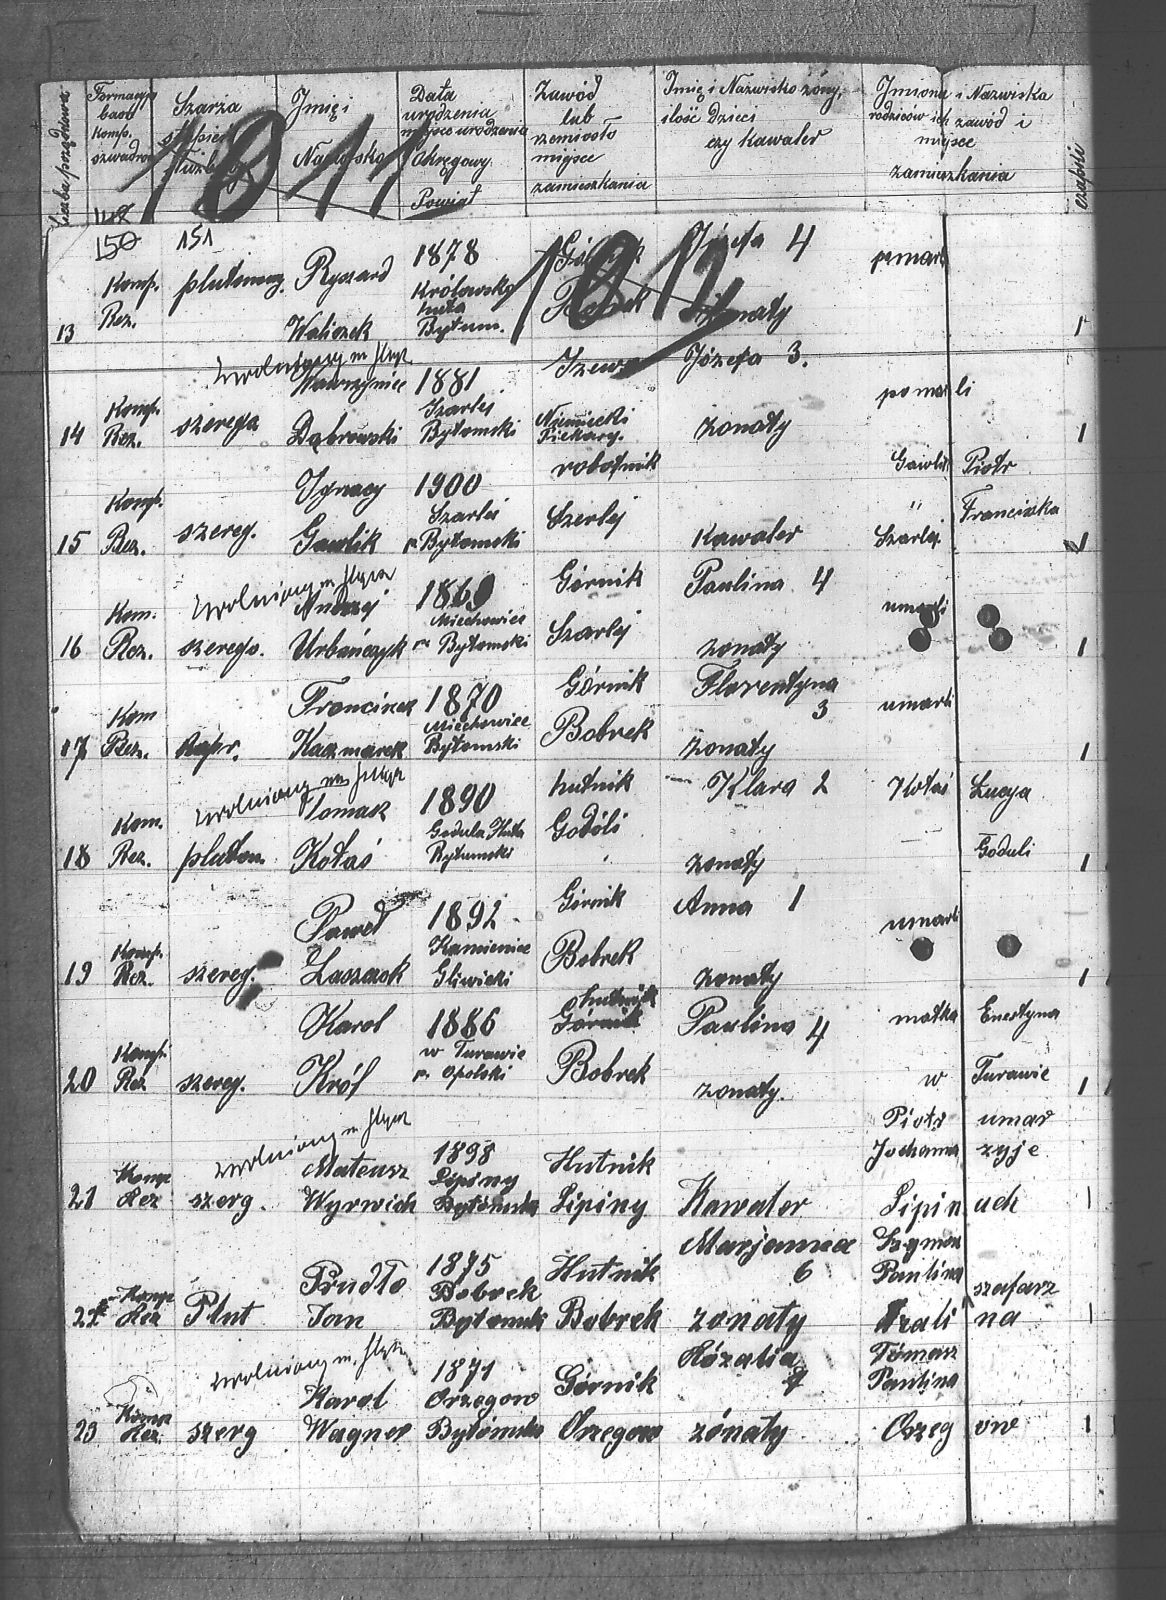 Liczba porządkowa
Formacya baon komp. szwadron
Szarża stopień służb.
Imię i Nazwisko
Data urodzenia miejsce urodzenia Okręgowy Powiat
Zawód lub rzemiosło miejsce zamieszkania
Imię i Nazwisko żony, ilość dzieci czy kawaler
Imiona i Nazwiska rodziców ich zawód i miejsce zamieszkania
czapki
1011
148
150 151
1012
Józefa 4
Komp. plutonowy. Ryszard 1878 pomarli
Królewska huta
13 Rez. Waliczek Bytom. żonaty 1
zwolniony m
Wawrzyniec 1881 Szewc Józefa 3.
Komp. Szarlej pomarli
14 Rez. szerego Dąbrowski Bytomski Niemiecki Piekary. żonaty 1
Ignacy 1900 robotnik Gawlik Piotr
Komp. Szarlej " Franciszka
15 Rez. szereg. Gawlik p. Bytomski Szerlej Kawaler Szarlej 1
zwolniony m
Andrzej 1869 Górnik Paulina 4
Kom. Miechowice umarli
16 Rez. szerego. Urbańczyk p. Bytomski Szarlej żonaty 1
Francizek 1870 Górnik Florentyna 3
Kom Miechowice umarli
17 Rez. kapr. Kaczmarek Bytomski Bobrek żonaty 1
zwolniony m
Tomasz 1890 hutnik Klara 2 Kotaś Łucya
Kom. Godula Huta
18 Rez. pluton. Kotaś Bytumski Godóli żonaty Goduli 1
Paweł 1892 Górnik Anna 1
Komp. Kamieniec umarli
19 Rez. szereg. Łaszczok Gliwicki Bobrek żonaty 1
Karol 1886 hutnik Górnik Paulina 4 matka Ernestyna
Komp. w Turawie
20 Rez szereg. Król p. Opolski Bobrek żonaty. w Turawie 1
zwolniony m
Piotr umar
Mateusz 1898 Hutnik Johanna zyje
Komp Lipiny
21 Rez szerg. Wyrwich Bytómska Lipiny Kawaler Lipinach 1
Marjanna 6 Szymon
Prudło 1875 Hutnik Paulina
Komp Bobrek szafarz
22 Rez Plut Jan Bytomsk Bobrek zonaty na 1
zwolniony m.
Rózalia Tómasz
Karol 1871 Górnik Paulina
Komp Orzegow
23 Rez. szerg Wagner Bytómska Orzegow zónaty Orzegow 1